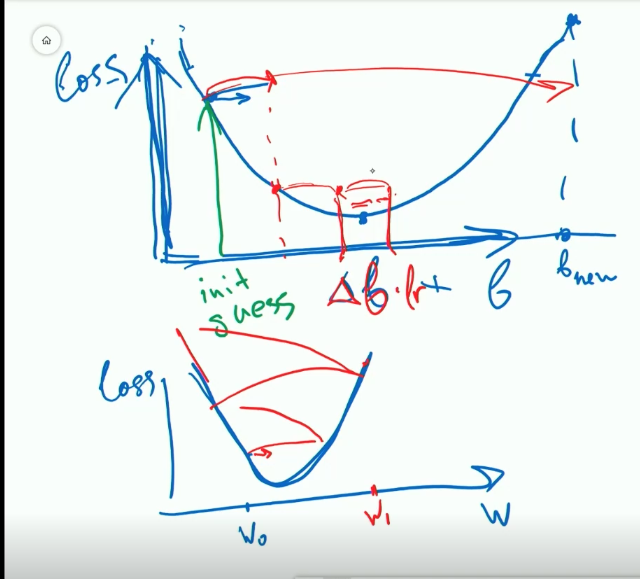 Loss
init
guess
Δb · lr +
b
b new
Loss
W₀
W₁
W